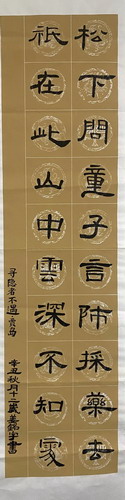 松下問童子言師採藥去
祇在此山中雲深不知處
尋隐者不遇 賈島
辛丑秋月十一歲